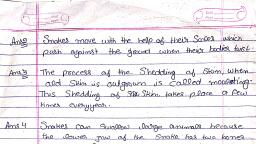 Ans2 Snakes move with the help of their Scales which
push against the ground when their bodies
Ans3 The process of the Shedding of Skin, when
old Skin is outgrown is called moulting.
This Shedding of Skin takes place a few
times everyyear.
Ans 4 Snakes can Swallow large animals because
the lower jaw of the Snake has two bones